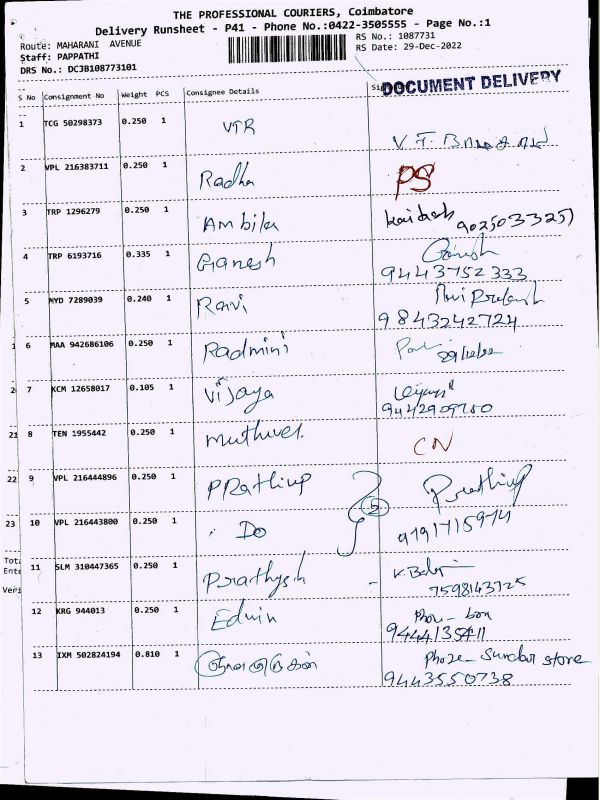 THE PROFESSIONAL COURIERS, Coimbatore
Delivery Runsheet - P41 - Phone No.:0422-3505555 - Page No.:1
Route: MAHARANI AVENUE
RS No.: 1087731
Staff: PAPPATHI
RS Date: 29-Dec-2022
DRS No.: DCJB108773101
DOCUMENT DELIVERY
S No Consignment No Weight PCS Consignee Details
1 TCG 50298373 0.250 1 VTR
2 VPL 216383711 0.250 1 Radha PS
3 TRP 1296279 0.250 1 Ambika
9025033251
4 TRP 6193716 0.335 1 Ganesh Ganesh
9443752333
5 MYD 7289039 0.240 1 Ravi
9843242724
6 MAA 942686106 0.250 1 Radmini
29/12/22
7 KCM 12658017 0.105 1 Vijaya
21 8 TEN 1955442 0.250 1 muthuvel CN
22 9 VPL 216444896 0.250 1 PRathiup
23 10 VPL 216443800 0.250 1 Do 2
11 SLM 310447365 0.250 1 Prathysh
7598143725
12 KRG 944013 0.250 1 Edwin
13 IXM 502824194 0.810 1 store
9443550738